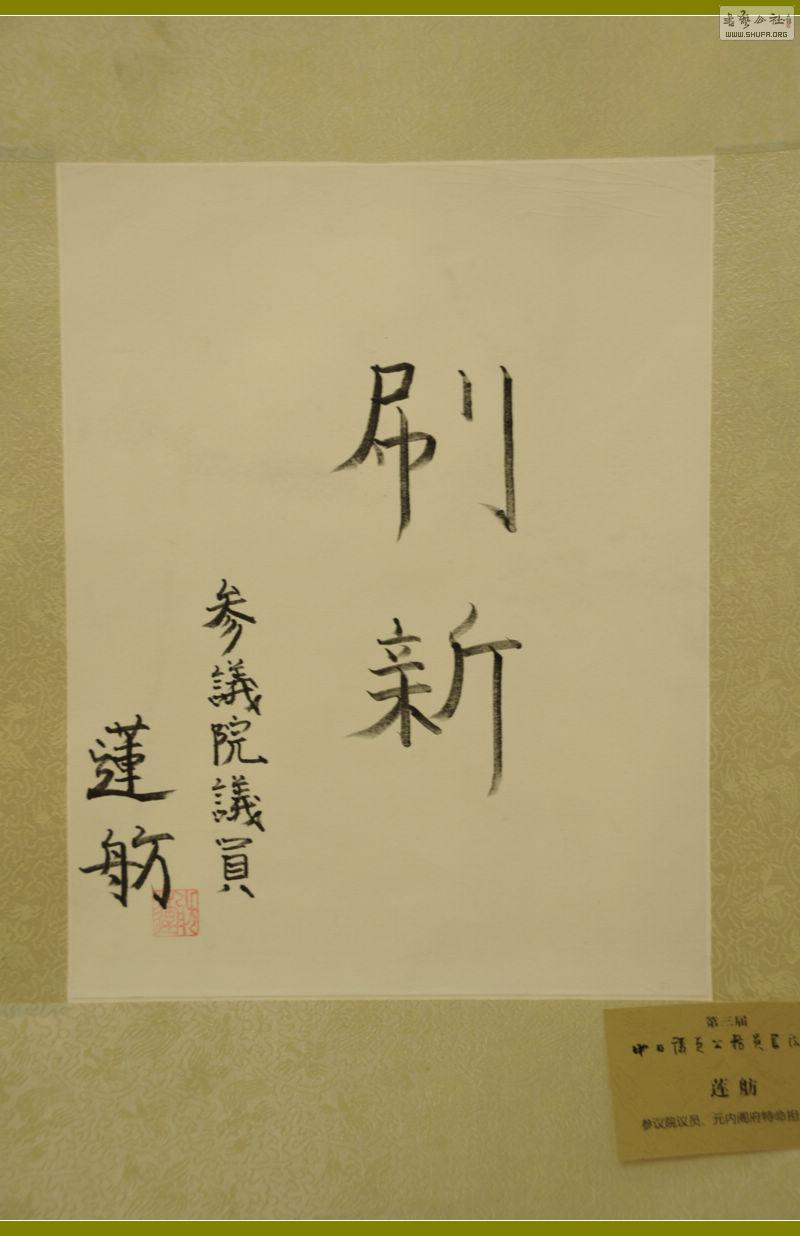 刷新
参議院議員
蓮舫
第三届
中日议员公务员书法
莲舫
参议院议员、元内阁府特命担
书艺公社
WWW.SHUFA.ORG